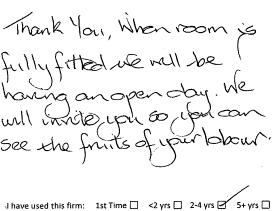 Thank You, When room is
fully fitted we will be
having an open day. We
will invite you so you can
see the fruits of your labour.
I have used this firm: 1st Time ☐ <2 yrs ☐ 2-4 yrs ☑ 5+ yrs ☐